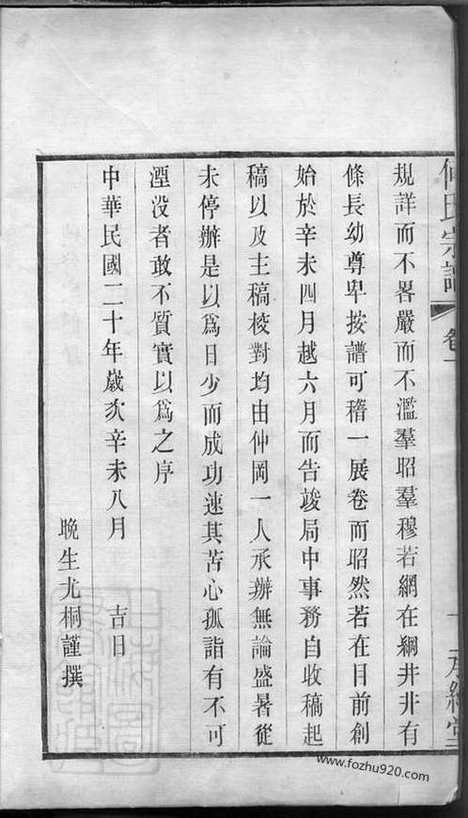 何氏宗譜
卷一
規詳而不畧嚴而不濫羣昭羣穆若網在綱井井有
條長幼尊卑按譜可稽一展卷而昭然若在目前創
始於辛未四月越六月而告竣局中事務自收稿起
稿以及主稿校對均由仲岡一人承辦無論盛暑從
未停辦是以為日少而成功速其苦心孤詣有不可
湮沒者敢不質實以為之序
中華民國二十年歲次辛未八月　吉日
晚生尤桐謹撰
www.fozhu920.com